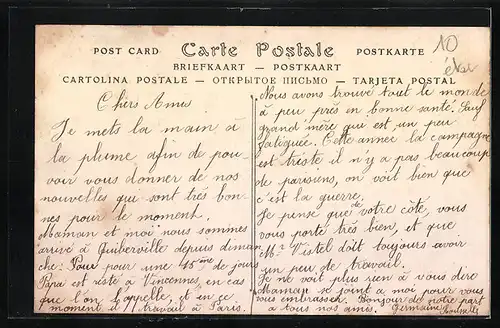 POST CARD Carte Postale POSTKARTE
BRIEFKAART — POSTKAART
CARTOLINA POSTALE — ОТКРЫТОЕ ПИСЬМО — TARJETA POSTAL
10
Chers Amis
Je mets la main à
la plume afin de pou-
voir vous donner de nos
nouvelles qui sont très bon-
nes pour le moment.
Maman et moi nous sommes
arrivé à Quiberville depuis diman
che. Pour pour une 15ème de jours
Papa est resté à Vincennes, en cas
que l'on l'appelle, et en ce
moment il travail à Paris.
Nous avons trouvé tout le monde
à peu près en bonne santé. Sauf
grand'mère qui est un peu
fatiguée. Cette année la campagne
est triste il n'y a pas beaucoup
de parisiens, on voit bien que
c'est la guerre.
Je pense que de votre côté, vous
vous porté très bien, et que
Mr Vistel doit toujours avoir
un peu de travail.
Je ne voit plus rien à vous dire
Maman se joint a moi pour vous
vous embrasser. Bonjour de notre part
a tous nos amis. Germaine